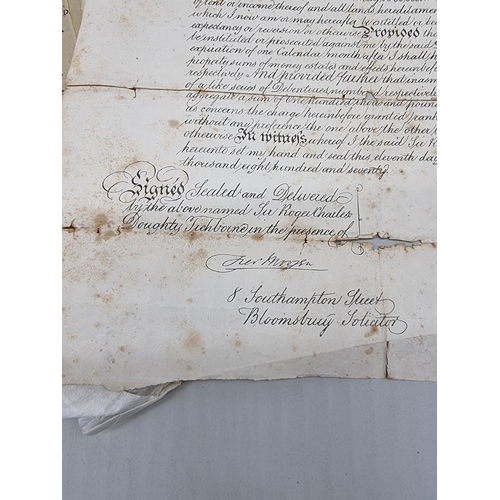 of rent or income thereof and all lands hereditame
which I now am or may hereafter be entitled or be
expectancy or reversion or otherwise Provided tha
be instituted or prosecuted against me by the said
expiration of one Calendar month after I shall h
property sums of money estates and effects hereinbefor
respectively And provided further that inasm
of a like series of Debentures number respectively
aggregate a sum of One hundred thousand pound
as concerns the charge hereinbefore granted rank
without any preference the one above the other b
otherwise In witness whereof I the said Sir R
hereunto set my hand and seal this eleventh da
thousand eight hundred and seventy
Signed Sealed and Delivered
by the above named Sir Roger Charles
Doughty Tichborne in the presence of
8 Southampton Street
Bloomsbury Solicitor